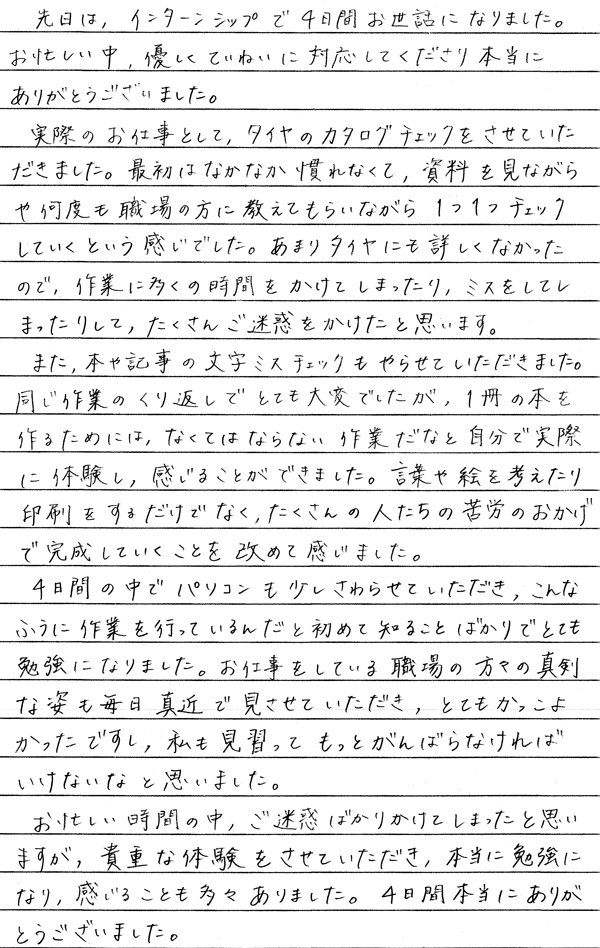 先日は，インターンシップで4日間お世話になりました。
お忙しい中，優しくていねいに対応してくださり本当に
ありがとうございました。
実際のお仕事として，タイヤのカタログチェックをさせていた
だきました。最初はなかなか慣れなくて，資料を見ながら
や何度も職場の方に教えてもらいながら1つ1つチェック
していくという感じでした。あまりタイヤにも詳しくなかった
ので，作業に多くの時間をかけてしまったり，ミスをしてし
まったりして，たくさんご迷惑をかけたと思います。
また，本や記事の文字ミスチェックもやらせていただきました。
同じ作業のくり返しでとても大変でしたが，1冊の本を
作るためには，なくてはならない作業だなと自分で実際
に体験し，感じることができました。言葉や絵を考えたり
印刷をするだけでなく，たくさんの人たちの苦労のおかげ
で完成していくことを改めて感じました。
4日間の中でパソコンも少しさわらせていただき，こんな
ふうに作業を行っているんだと初めて知ることばかりでとても
勉強になりました。お仕事をしている職場の方々の真剣
な姿も毎日真近で見させていただき，とてもかっこよ
かったですし，私も見習ってもっとがんばらなければ
いけないなと思いました。
お忙しい時間の中，ご迷惑ばかりかけてしまったと思い
ますが，貴重な体験をさせていただき，本当に勉強に
なり，感じることも多々ありました。4日間本当にありが
とうございました。